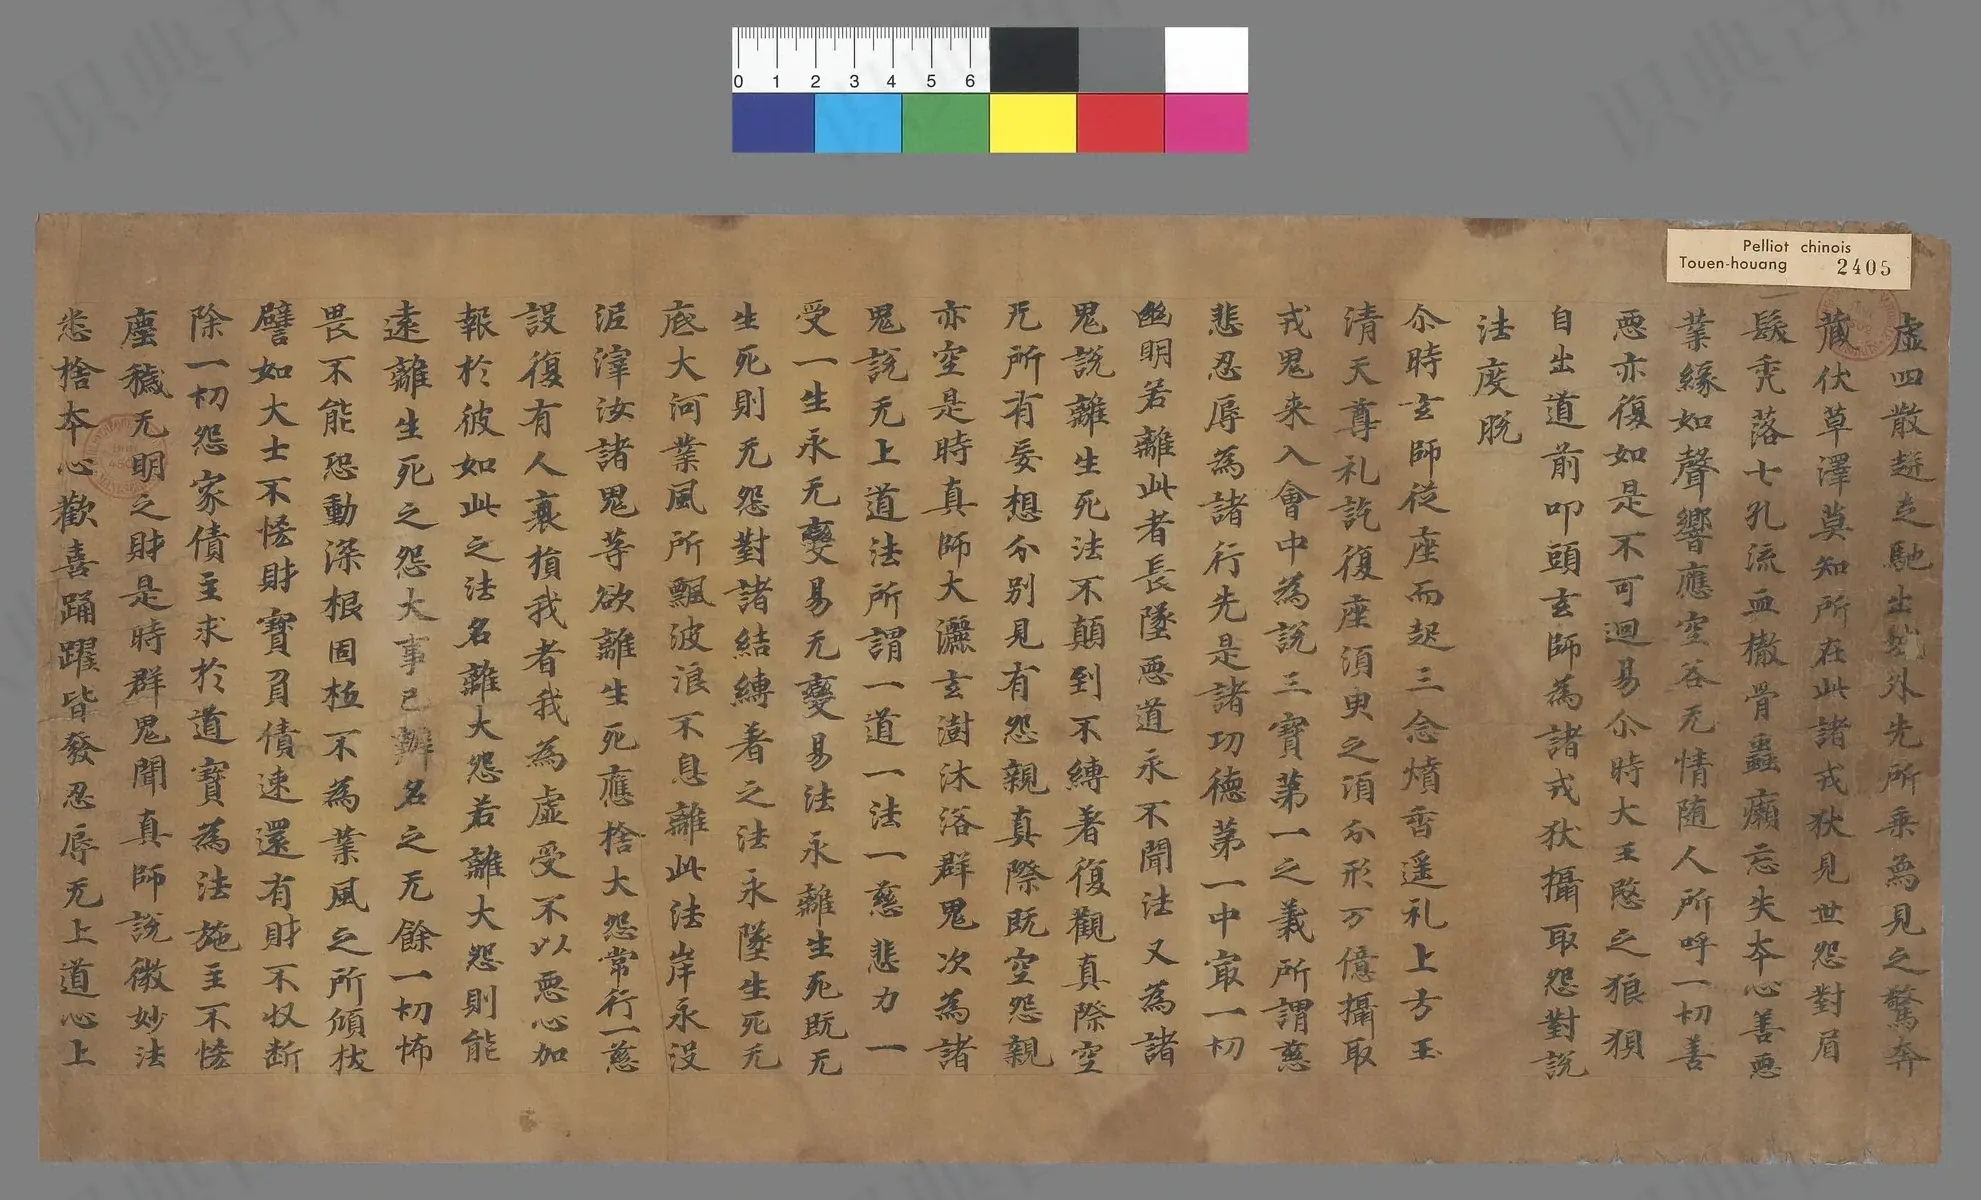 Pelliot chinois
Touen-houang 2405
0 1 2 3 4 5 6
虚四散趍走馳出城外先所乘焉見之驚奔
藏伏草澤莫知所在此諸戎狄見世怨對眉
髮禿落七孔流血橵骨蟲癩忘失夲心善惡
業緣如聲響應空谷无情随人所呼一切善
惡亦復如是不可迴易尒時大王愍之狼狽
自出道前叩頭玄師為諸戎狄攝取怨對說
法度脱
尒時玄師従座而起三念燌香遥礼上方玉
清天尊礼訖復座須臾之湏分形万億攝取
戎鬼来入會中為說三寶第一之義所謂慈
悲忍辱為諸行先是諸功徳第一中㝡一切
幽明若離此者長墜惡道永不聞法又為諸
鬼說離生死法不顛到不縛著復觀真際空
无所有妄想分别見有怨親真際既空怨親
亦空是時真師大灑玄澍沐浴群鬼次為諸
鬼說无上道法所謂一道一法一慈悲力一
受一生永无變易无變易法永離生死既无
生死則无怨對諸結縛著之法永墜生死无
底大河業風所飄波浪不息離此法岸永没
泥滓汝諸鬼等欲離生死應捨大怨常行一慈
設復有人裹損我者我為虚受不以惡心加
報於彼如此之法名離大怨若離大怨則能
遠離生死之怨大事已辦名之无餘一切怖
畏不能恐動深根固柢不為業風之所傾拔
譬如大士不悋財寶負債速還有財不収断
除一切怨家債主求於道寶為法施主不悋
塵穢无明之財是時群鬼聞真師說微妙法
悉捨夲心歡喜踊躍皆發忍辱无上道心上